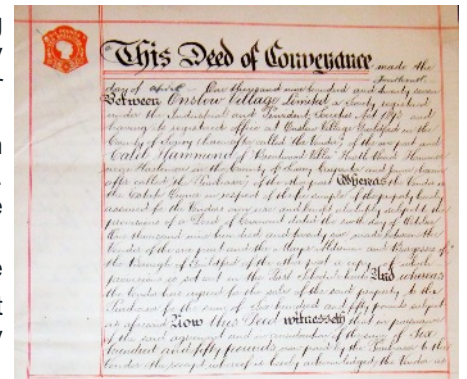 This Deed of Conveyance made the
fourteenth
day of April One thousand nine hundred and twenty seven
Between Onslow Village Limited a Society registered
under the Industrial and Provident Societies Act 1893 and
having its registered office at Onslow Village Guildford in the
County of Surrey (hereinafter called the Vendor) of the one part and
Caleb Hammond of Villa Heath Road
Haslemere in the County of Surrey Carpenter and
after called the Purchaser) of the other part Whereas the Vendor is
the Estate Owner in respect of the fee simple of the property hereby
assured for the Vendors own use and benefit absolutely subject to the
provisions of a Deed of Covenant dated the day of October
One thousand nine hundred and twenty made between the
Vendor of the one part and the Mayor Aldermen and Burgesses of
the Borough of Guildford of the other part a copy of which
provisions is set out in the First Schedule hereto And whereas
the Vendor has agreed for the sale of the said property to the
Purchaser for the sum of Six hundred and fifty pounds subject
as aforesaid Now this Deed witnesseth that in pursuance
of the said agreement and in consideration of the sum of Six
hundred and fifty pounds paid by the Purchaser to the
Vendor (the receipt whereof is hereby acknowledged) the Vendor as